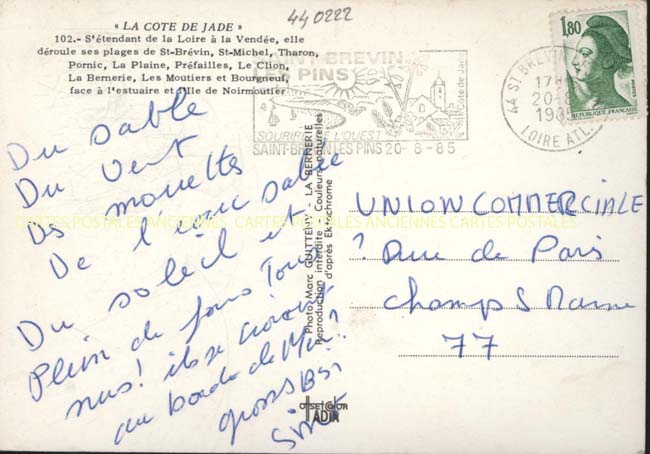 « LA COTE DE JADE »
102.- S'étendant de la Loire à la Vendée, elle
déroule ses plages de St-Brévin, St-Michel, Tharon,
Pornic, La Plaine, Préfailles, Le Clion,
La Bernerie, Les Moutiers et Bourgneuf,
face à l'estuaire et l'Ile de Noirmoutier
440222
SAINT-BREVIN
LES PINS
Côte de Jade
SOURIRE DE L'OUEST
SAINT-BREVIN LES PINS 20-8-85
44 ST BREVIN
17
20-8
1985
LOIRE ATL
1,80
REPUBLIQUE FRANÇAISE
Du sable
Du vent
Ds mouettes
De l'eau salée
Du soleil et
Plein de fous Tous
nus! ils se croient
au bord de Mer?
gross BSI
Simot
Photo Marc GUITTENY, LA BERNERIE
Reproduction interdite - Couleurs naturelles
d'après Ektachrome
OFFSET COLOR
CARTES POSTALES ANCIENNES CARTES POSTALES
UNION COMMERCIALE
? Rue de Paris
Champs S Marne
77